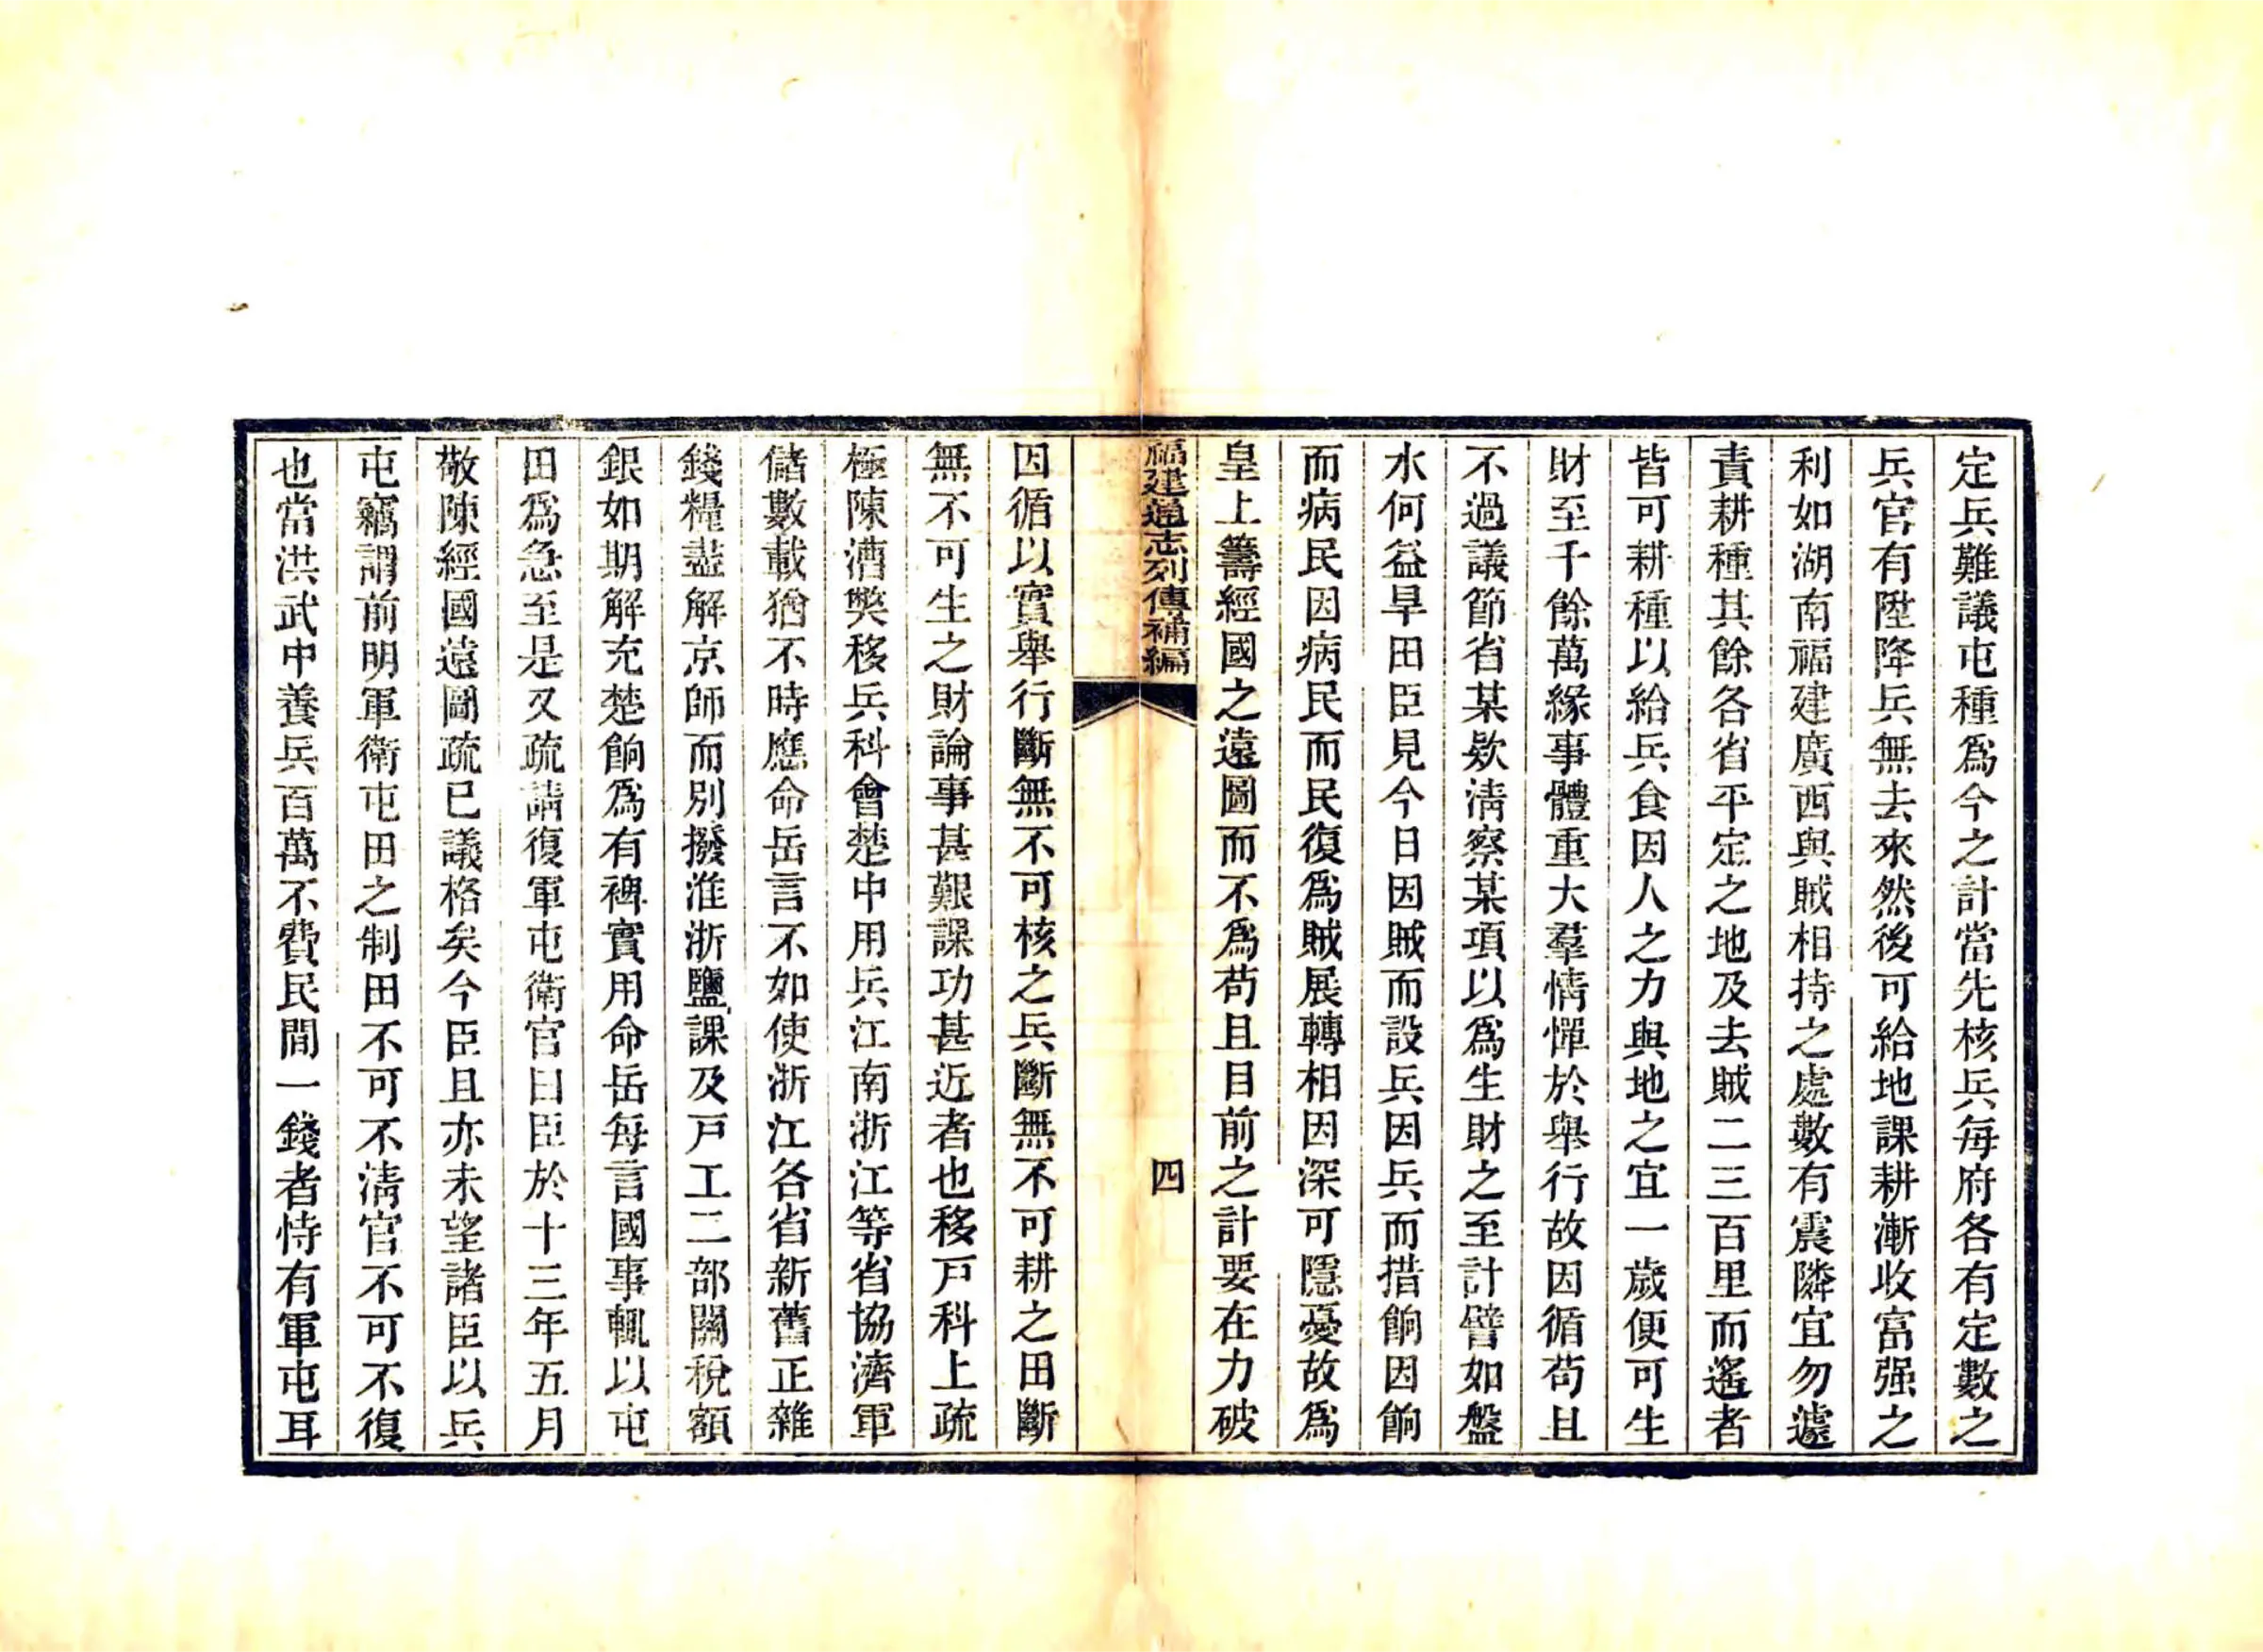 定兵難議屯種爲今之計當先核兵每府各有定數之
兵官有陞降兵無去來然後可給地課耕漸收富强之
利如湖南福建廣西與賊相持之處數有震隣宜勿遽
責耕種其餘各省平定之地及去賊二三百里而遙者
皆可耕種以給兵食因人之力與地之宜一歲便可生
財至千餘萬緣事體重大羣情憚於舉行故因循苟且
不過議節省某欵淸察某項以爲生財之至計譬如盤
水何益旱田臣見今日因賊而設兵因兵而措餉因餉
而病民因病民而民復爲賊展轉相因深可隱憂故爲
皇上籌經國之遠圖而不爲苟且目前之計要在力破
福建通志列傳補編
四
因循以實舉行斷無不可核之兵斷無不可耕之田斷
無不可生之財論事甚艱課功甚近者也移戸科上疏
極陳漕獘移兵科會楚中用兵江南浙江等省協濟軍
儲數載猶不時應命岳言不如使浙江各省新舊正雜
錢糧盡解京師而別撥淮浙鹽課及戸工二部關稅額
銀如期解充楚餉爲有裨實用命岳每言國事輒以屯
田爲急至是又疏請復軍屯衛官曰臣於十三年五月
敬陳經國遠圖疏已議格矣今臣且亦未望諸臣以兵
屯竊謂前明軍衛屯田之制田不可不淸官不可不復
也當洪武中養兵百萬不費民間一錢者恃有軍屯耳